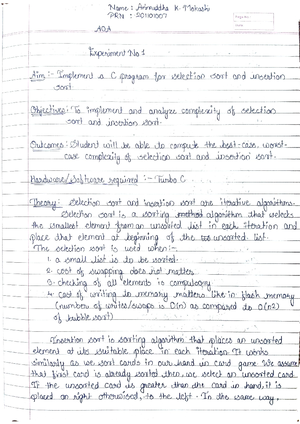 Name : Aniruddha K. Mokashi
PRN : 20110100?
AOA
Experiment No 1
Aim :- Implement a C program for selection sort and insertion
sort
Objectives: To implement and analyze complexity of selection
sort and insertion sort.
Outcomes : Student will be able to compute the best-case, worst-
case complexity of selection sort and insertion sort.
Hardware/Software required :- Turbo C
Theory:- Selection sort and insertion sort are iterative algorithms.
Selection sort is a sorting method algorithm that selects
the smallest element from an unsorted list in each iteration and
place that element at beginning of the unsorted list.
The selection sort is used when :-
1. a small list is to be sorted.
2. cost of swapping does not matter
3. checking of all elements is compulsory
4. cost of writing to memory matters like in flash memory
(number of writes/swaps is O(n) as compared to O(n2)
of bubble sort)
Insertion sort is sorting algorithm that places an unsorted
element at its suitable place in each iteration. It works
similarly as we sort cards in our hand in card game. We assume
that first card is already sorted then, we select an unsorted card.
If the unsorted card is greater than the card in hand, it is
placed on right otherwised, to the left. In the same way,